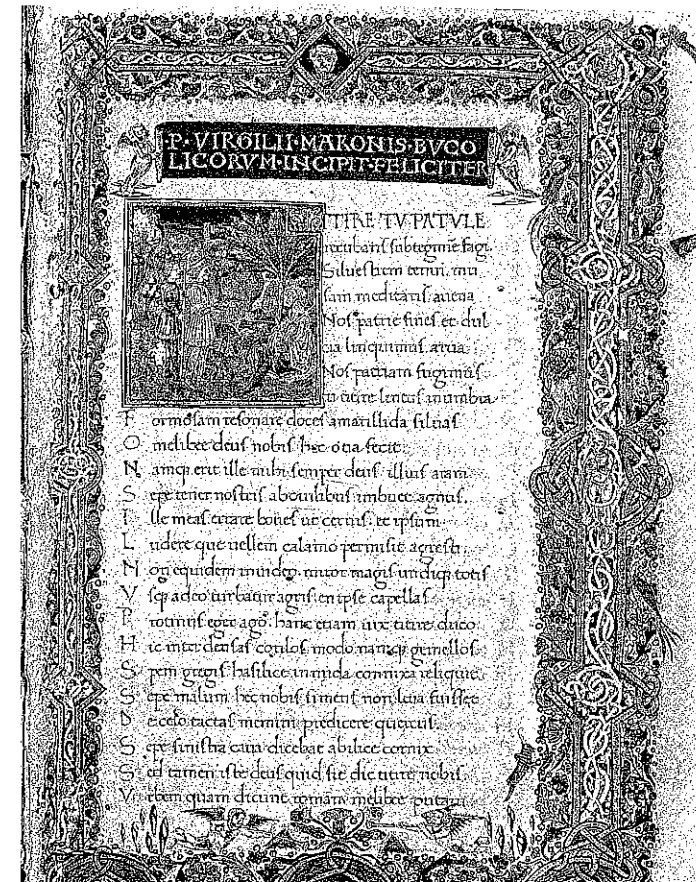 P·VIRGILII·MARONIS·BVCO
LICORVM·INCIPIT·FELICITER
TITIRE TV PATVLE
recubans sub tegmine fagi
Silvestrem tenui mu
sam meditaris avena
Nos patrie fines et dul
cia linquimus arua
Nos patriam fugimus
tu titire lentus in umbra
Formosam resonare doces amarillida siluas
O melibee deus nobis hec otia fecit
Namq; erit ille mihi semper deus. illius aram
Sepe tener nostris ab ouilibus imbuet agnus.
Ille meas errare boues ut cernis. et ipsum
Ludere que uellem calamo permisit agresti.
Non equidem inuideo. miror magis undiq; totis
Vsq; adeo turbatur agris. en ipse capellas
Protinus eger ago. hanc etiam uix titire duco.
Hic inter densas corilos modo namq; gemellos.
Spem gregis. ha silice in nuda connixa reliquit.
Sepe malum hoc nobis si mens non leua fuisset
De celo tactas memini predicere quercus.
Sepe sinistra caua dicebat ab ilice cornix
Sed tamen iste deus qui sit dic titire nobis.
Vrbem quam dicunt romam melibee putaui